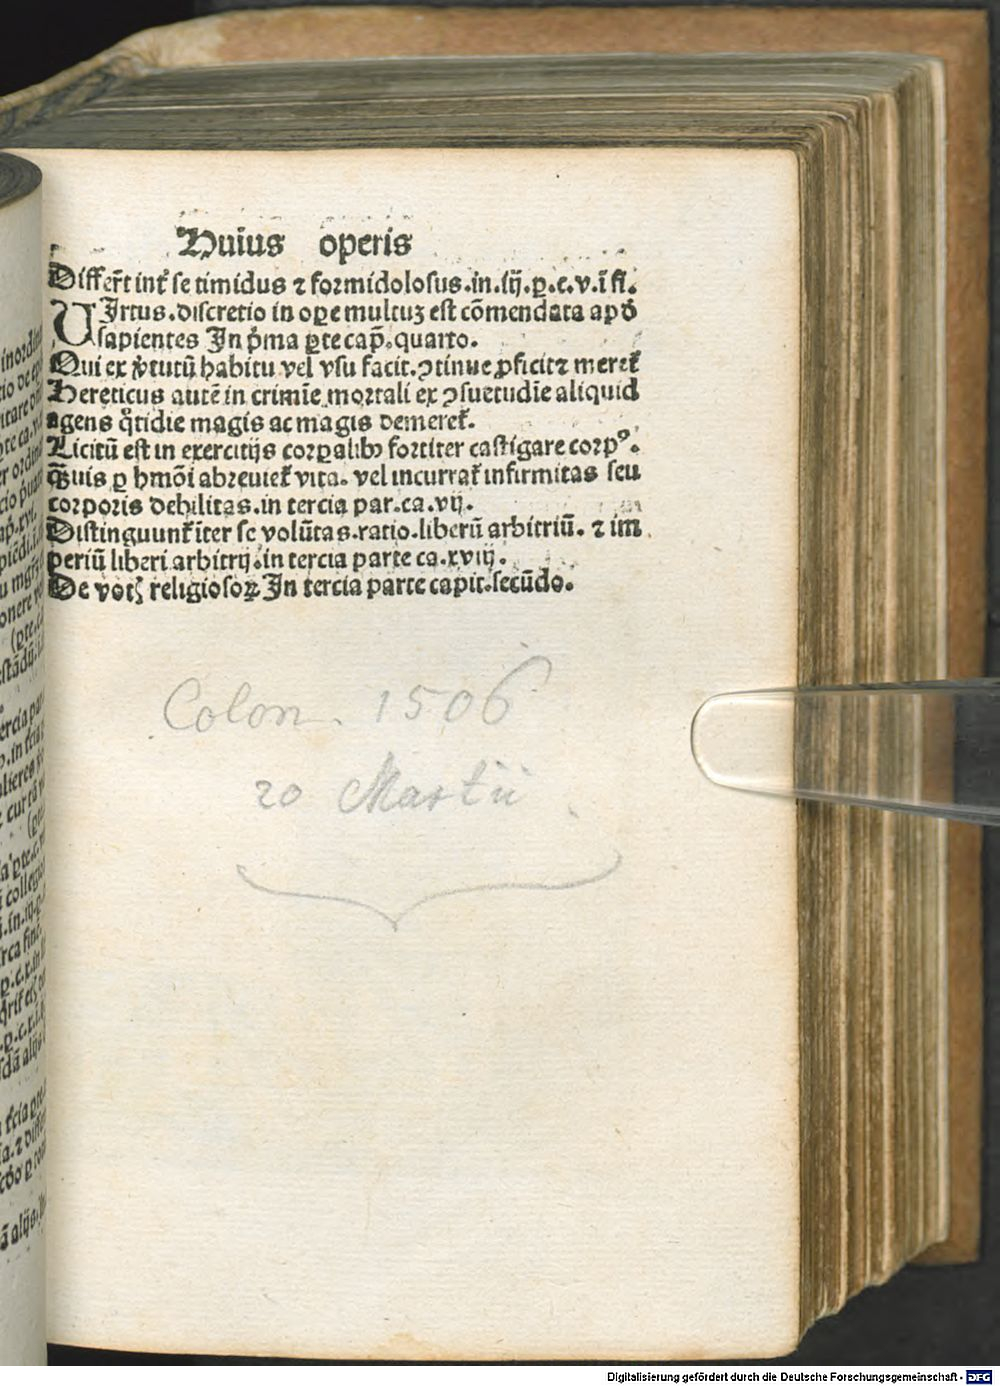 Huius operis
Differt̄ int̄ se timidus ⁊ formidolosus.in.iij.ꝑ.c.v.ī fi.
VIrtus.discretio in oꝑe multuꝫ est cōmendata apd̄
sapientes In pͥma ꝑte cap̄.quarto.
Qui ex v̓tutū habitu vel vsu facit.ꝯtinue ꝓficit⁊ meret̄
Hereticus autē in crimīe mortali ex ꝯsuetudīe aliquid
agens qͦtidie magis ac magis demeret̄.
Licitū est in exercitijs corꝑalibꝰ fortiter castigare corpꝰ.
qͣ̄uis ꝑ hmōi abreuiet̄ vita. vel incurrat̄ infirmitas seu
corporis debilitas.in tercia par.ca.vij.
Distinguunt̄ īter se volūtas.ratio.liberū arbitriū. ⁊ im
periū liberi arbitrij.in tercia parte ca.xviij.
De votꝭ religiosoꝝ In tercia parte capit.secūdo.
Colon. 1506
20 Martii
Digitalisierung gefördert durch die Deutsche Forschungsgemeinschaft - DFG